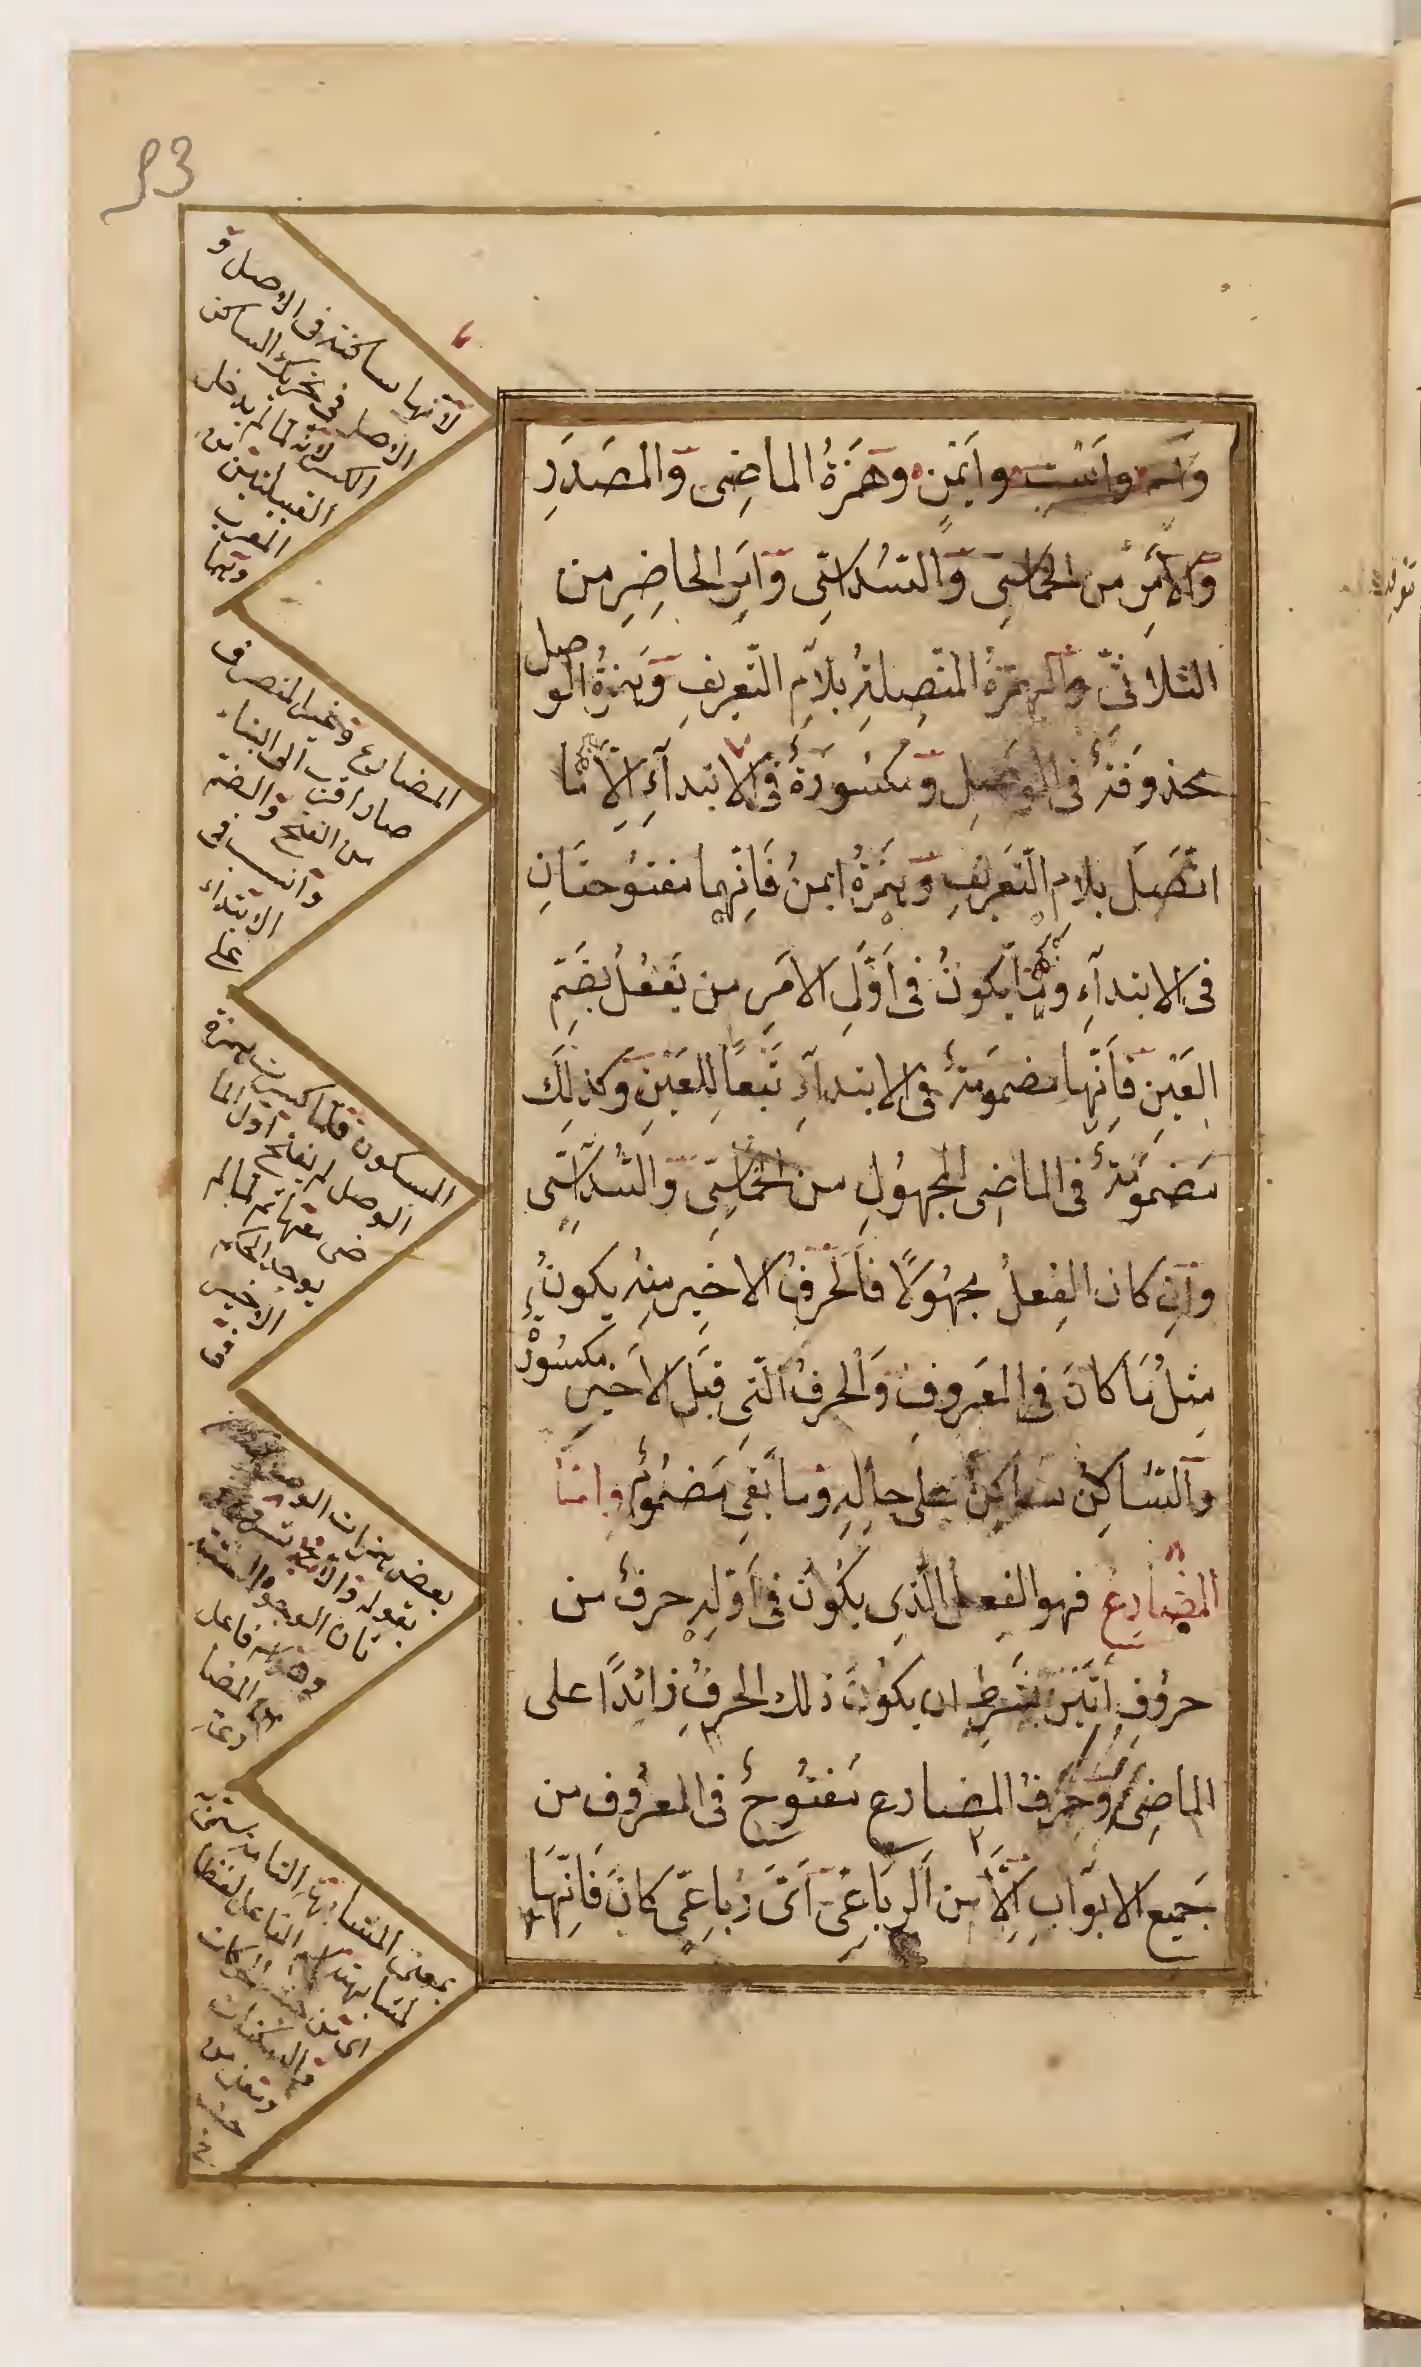 93
واسم واست وايمن وهمزة الماضى والمصدر
والامر من الخماسى والسداسى وامر الحاضر من
الثلاثى والهمزة المتصلة بلام التعريف وهمزة الوصل
محذوفة فى الوصل ومكسورة فى الابتداء الا ما
اتصل بلام التعريف وهمزة ايمن فانهما مفتوحتان
فى الابتداء وما يكون فى اول الامر من يفعل بضم
العين فانها مضمومة فى الابتداء تبعا للعين وكذلك
مضمومة فى الماضى المجهول من الخماسى والسداسى
وان كان الفعل مجهولا فالحرف الاخير منه يكون
مثل ما كان فى المعروف والحرف التى قبل الاخير مكسور
والساكن ساكن على حاله وما بقى مضموم واما
المضارع فهو الفعل الذى يكون فى اوله حرف من
حروف اتين بشرط ان يكون ذلك الحرف زائدا على
الماضى وحرف المضارع مفتوح فى المعروف من
جميع الابواب الا من الرباعى اى رباعى كان فانها
لانها ساكنة فى الاصل و
الاصل فى تحريك الساكن
الكسر لانه لما لم يدخل
القبيلتين من
المعرب
وهما
المضارع وغير المنصرف
صار اقرب الى البناء
من الفتح والضم
وانسب فى
الابتداء
على
السكون فلما كسرت همزة
الوصل لم يفتح اول الما
ضى معها ثم لما لم
يوجد الحكم
الاخير
فى
بعض همزات الوصل
بقوله والا
كان الوجوه
وهو اسم فاعل
المضا
رعة
بمعنى المشابهة انما سمى
لمشابهته اسم الفاعل لفظا
اى من حيث الحركات
والسكنات
ومعنى من
حيث